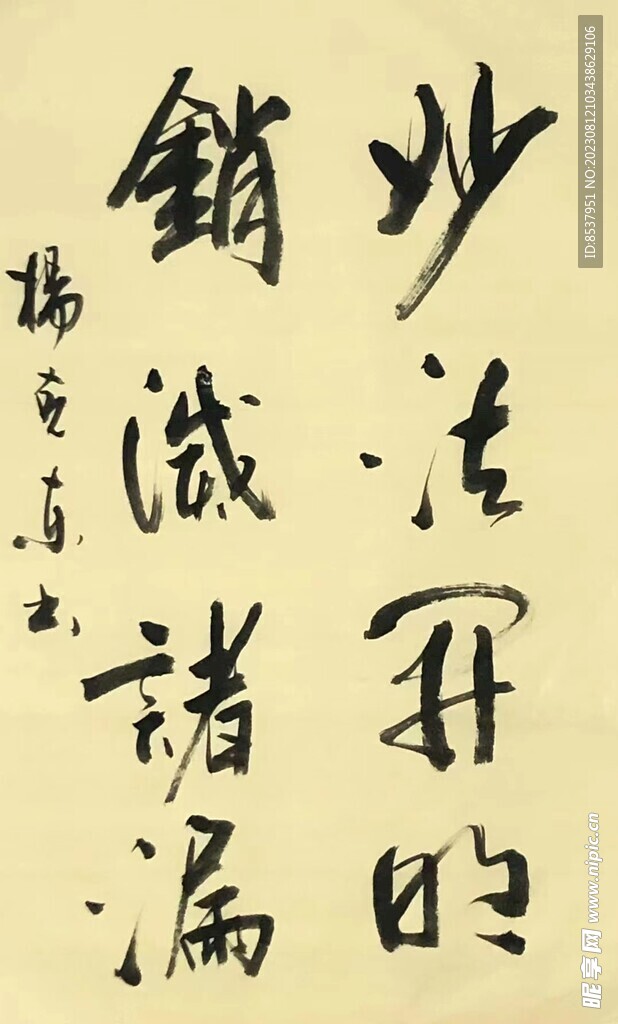 妙法開明
銷滅諸漏
楊克东书
ID:8537951 NO:20230812103438629106
昵享网 www.nipic.cn